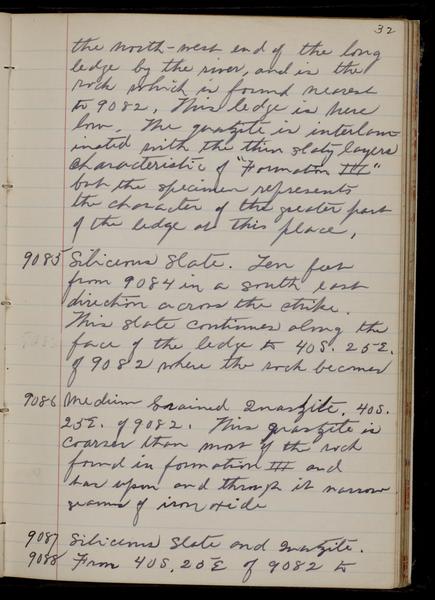 32
the north-west end of the long
ledge by the river, and is the
rock which is found nearest
to 9082. This ledge is here
low. The quartzite is interlam-
inated with the thin slaty layers
characteristic of "Formation III"
but the specimen represents
the character of the greater part
of the ledge at this place.
9085 Silicious Slate. Ten feet
from 9084 in a south east
direction across the strike.
This slate continues along the
face of the ledge to 40S. 25E.
of 9082 where the rock becomes
9086 Medium Grained Quartzite. 40S.
25E. of 9082. This quartzite is
coarser than most of the rock
found in formation III and
has upon and through it narrow
seams of iron oxide
9087 Silicious Slate and Quartzite.
9088 From 40S, 25E of 9082 to